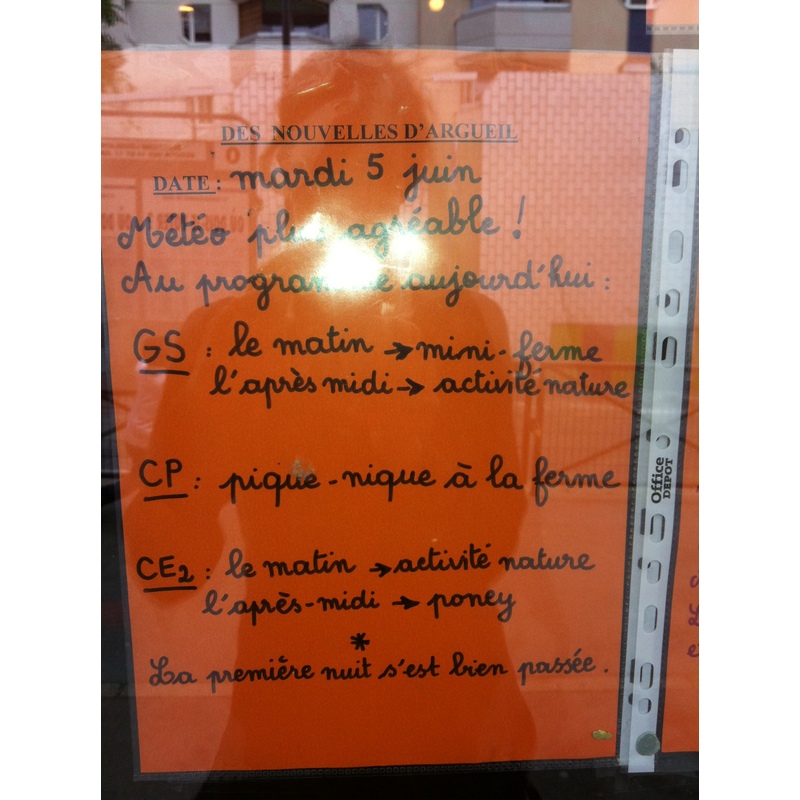 DES NOUVELLES D'ARGUEIL
DATE : mardi 5 juin
Météo plus agréable !
Au programme aujourd'hui :
GS : le matin → mini-ferme
l'après midi → activité nature
CP : pique-nique à la ferme
CE2 : le matin → activité nature
l'après-midi → poney
*
La première nuit s'est bien passée.
Office
DEPOT